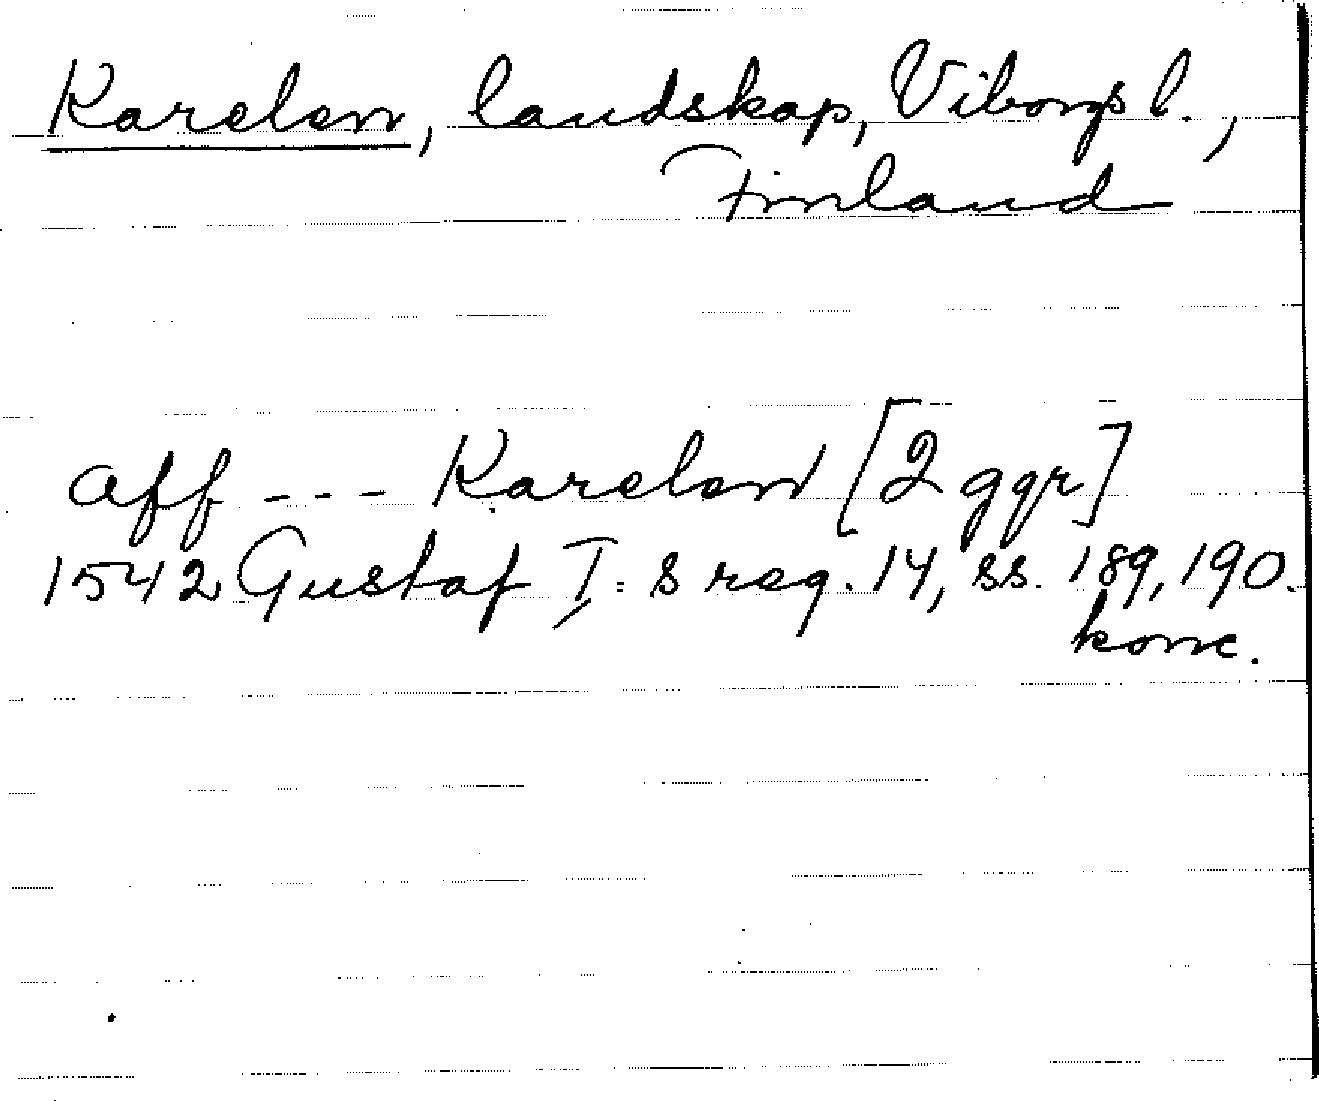 Karelen, landskap, Viborgs l.,
Finland
aff --- Karelen [2 ggr]
1542 Gustaf I:s reg. 14, ss. 189, 190.
konc.